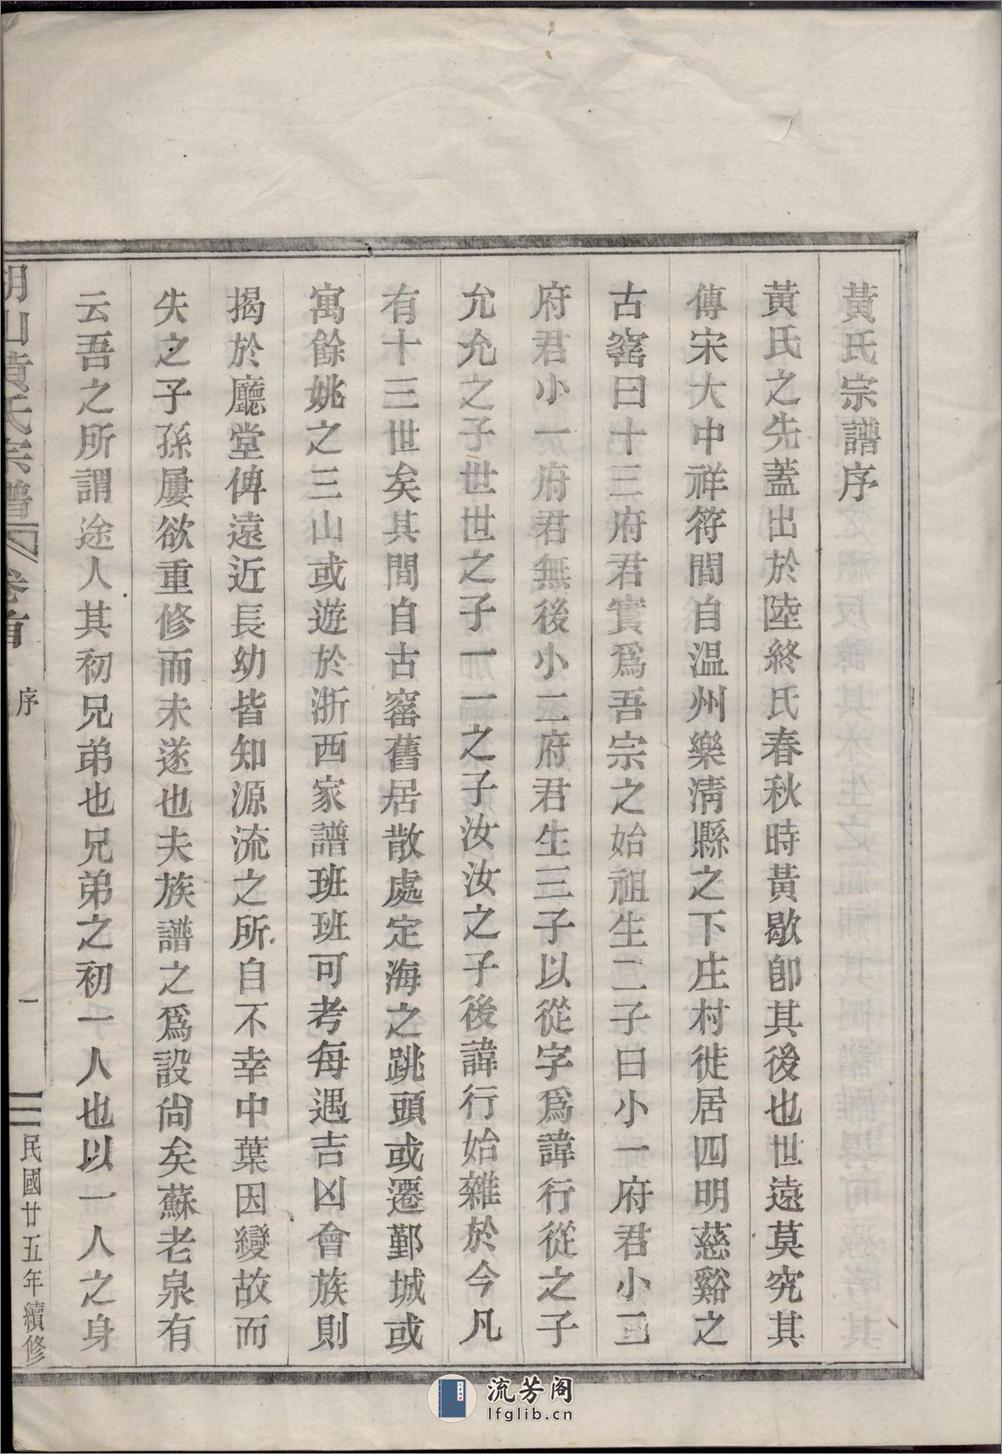 黃氏宗譜序
黃氏之先蓋出於陸終氏春秋時黃歇卽其後也世遠莫究其
傳宋大中祥符間自溫州樂清縣之下庄村徙居四明慈谿之
古窰曰十三府君實爲吾宗之始祖生二子曰小一府君小二
府君小一府君無後小二府君生三子以從字爲諱行從之子
允允之子世世之子一一之子汝汝之子後諱行始雜於今凡
有十三世矣其間自古窰舊居散處定海之跳頭或遷鄞城或
寓餘姚之三山或遊於浙西家譜班班可考每遇吉凶會族則
揭於廳堂俾遠近長幼皆知源流之所自不幸中葉因變故而
失之子孫屢欲重修而未遂也夫族譜之爲設尙矣蘇老泉有
云吾之所謂途人其初兄弟也兄弟之初一人也以一人之身
明山黃氏宗譜 卷首 序 一 民國廿五年續修
流芳阁
lfglib.cn